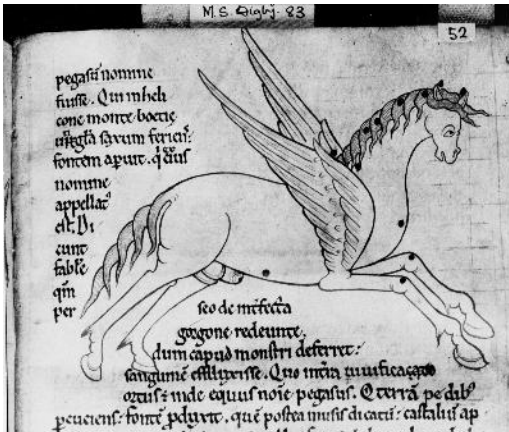 M.S. Digby. 83
52
pegasũ nomine
fuisse. Qui in heli
cone monte boetie
saxum feriens
fontem aperuit.
nomine
appellat⁹
est. Di
cunt
fabłe
qm̃
per
seo de interfecta
gorgone redeunte.
dum caput monstri deferret:
sanguinẽ effluxisse. Quo in terra
ortus: inde equus noĩe pegasus. Q terrã pedib⁹
percuciens: fontẽ pduxit. quẽ postea musis dicatũ: castalius ap